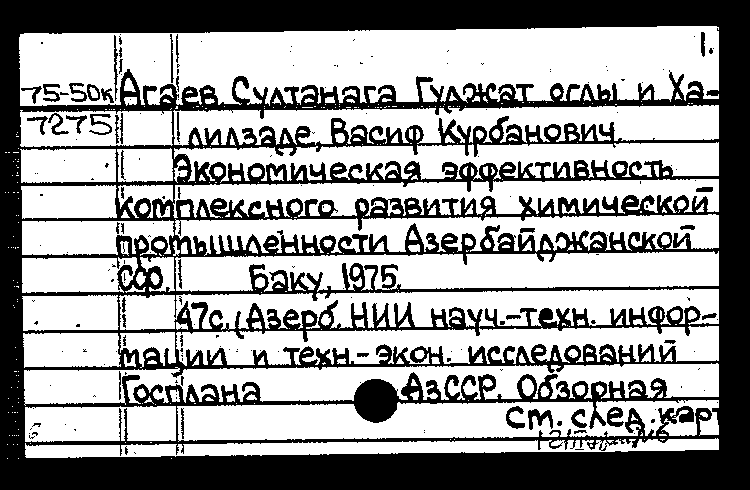 1.
75-50к Агаев Султанага Гуджат оглы и Ха-
7275 лилзаде, Васиф Курбанович.
Экономическая эффективность
комплексного развития химической
промышленности Азербайджанской
ССР. Баку, 1975.
47с. (Азерб. НИИ науч.-техн. инфор-
мации и техн.-экон. исследований
Госплана АзССР. Обзорная
См. след. карт
6